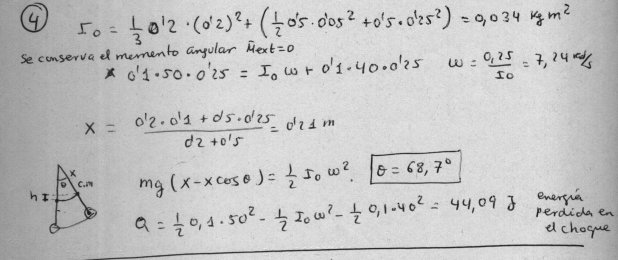 4 I₀ = 1/3 0'2 · (0'2)² + (1/2 0'5 · 0'05² + 0'5 · 0'25²) = 0,034 kg m²
Se conserva el momento angular Mext=0
0'1 · 50 · 0'25 = I₀ ω + 0'1 · 40 · 0'25 ω = 0,25/I₀ = 7,24 rad/s
X = (0'2 · 0'1 + 0'5 · 0'25)/(0'2 + 0'5) = 0'21 m
θ x c.m
h
mg (x - x cos θ) = 1/2 I₀ ω². θ = 68,7°
Q = 1/2 0,1 · 50² - 1/2 I₀ ω² - 1/2 0,1 · 40² = 44,09 J
energía
perdida en
el choque